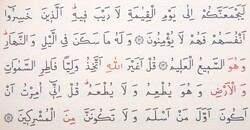 لَيَجْمَعَنَّكُمْ إِلَىٰ يَوْمِ الْقِيَٰمَةِ لَا رَيْبَ فِيهِ ۚ الَّذِينَ خَسِرُوا
أَنْفُسَهُمْ فَهُمْ لَا يُؤْمِنُونَ ۝ وَلَهُ مَا سَكَنَ فِي الَّيْلِ وَالنَّهَارِ ۚ
وَهُوَ السَّمِيعُ الْعَلِيمُ ۝ قُلْ أَغَيْرَ اللَّهِ أَتَّخِذُ وَلِيًّا فَاطِرِ السَّمَٰوَٰتِ
وَالْأَرْضِ وَهُوَ يُطْعِمُ وَلَا يُطْعَمُ ۗ قُلْ إِنِّي أُمِرْتُ أَنْ
أَكُونَ أَوَّلَ مَنْ أَسْلَمَ وَلَا تَكُونَنَّ مِنَ الْمُشْرِكِينَ ۝